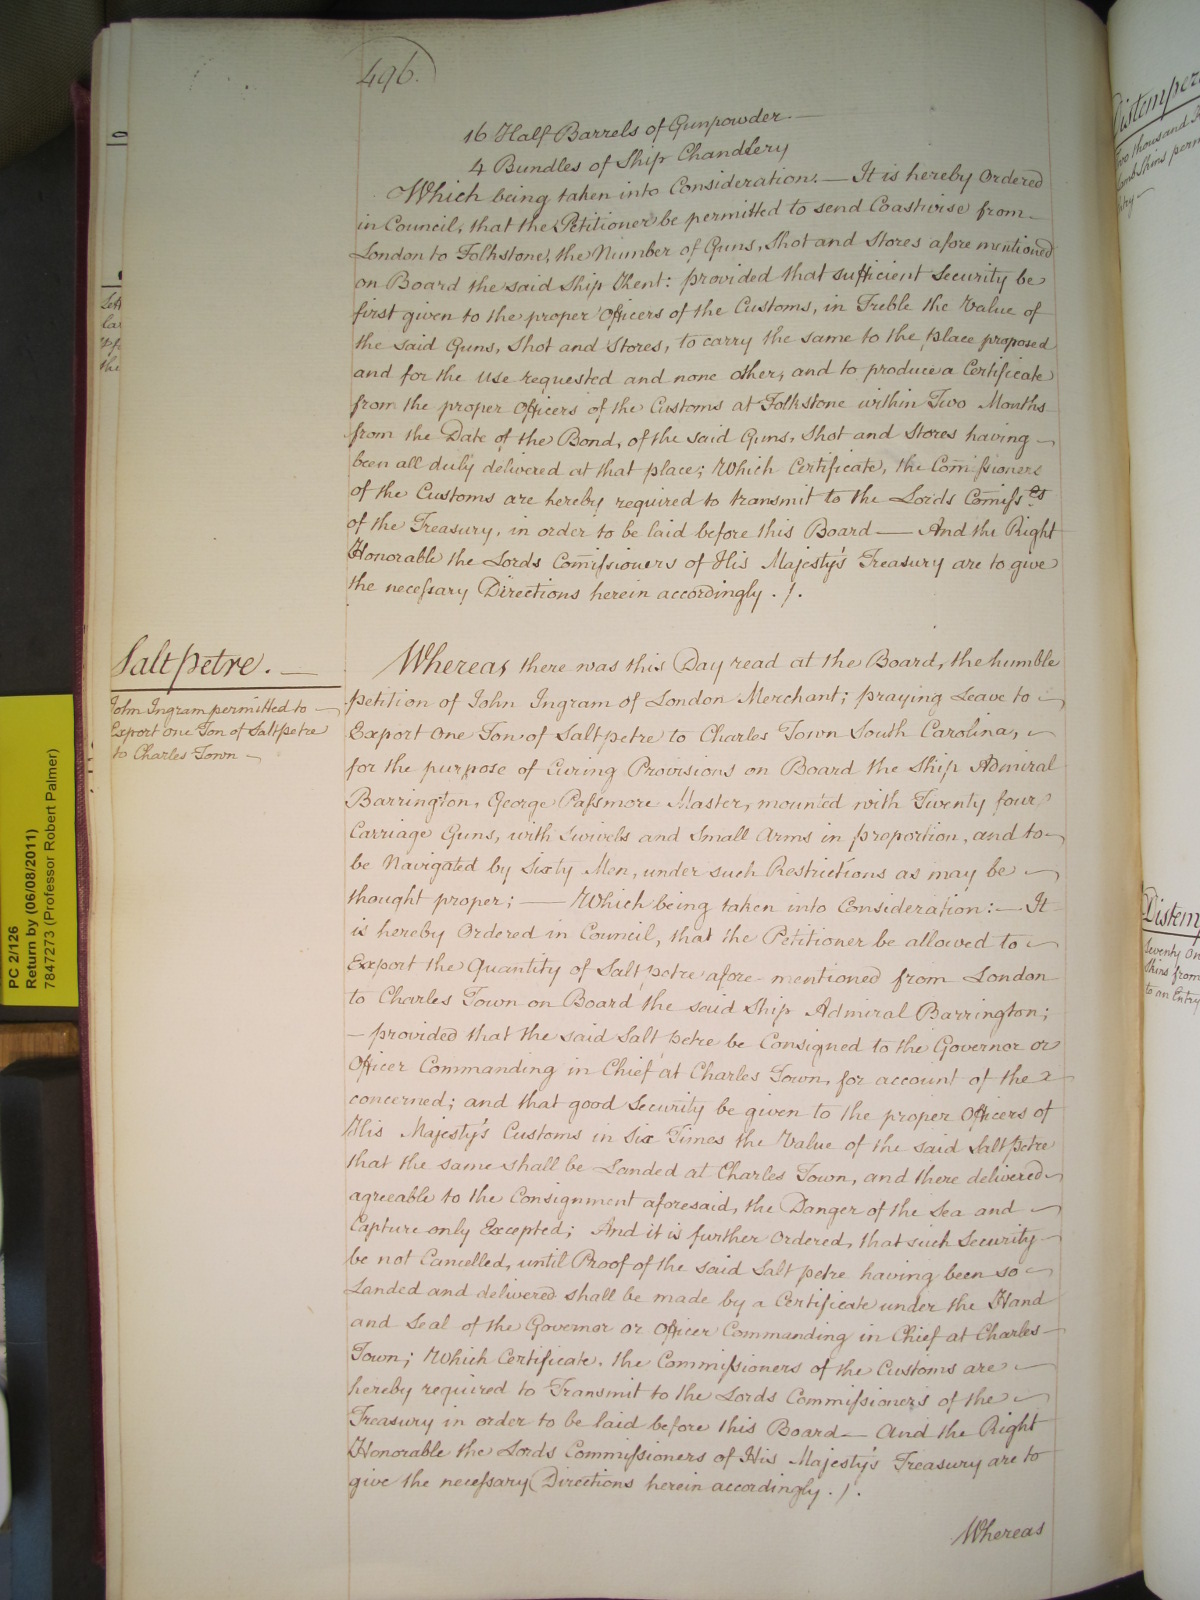 496.
16 Half Barrels of Gunpowder.—
4 Bundles of Ship Chandlery
Which being taken into Consideration.— It is hereby Ordered
in Council, that the Petitioner be permitted to send Coastwise from
London to Folkstone, the Number of Guns, Shot and Stores afore mentioned
on Board the said Ship Kent: provided that sufficient Security be
first given to the proper Officers of the Customs, in Treble the Value of
the said Guns, Shot and Stores, to carry the same to the place proposed
and for the Use requested and none other, and to produce a Certificate
from the proper Officers of the Customs at Folkstone within Two Months
from the Date of the Bond, of the said Guns, Shot and Stores having —
been all duly delivered at that place; Which Certificate, the Comissioners
of the Customs are hereby required to transmit to the Lords Comiss.rs
of the Treasury, in order to be laid before this Board — And the Right
Honorable the Lords Comissioners of His Majesty's Treasury are to give
the necessary Directions herein accordingly . /.
Saltpetre. —
John Ingram permitted to —
Export One Ton of Saltpetre
to Charles Town —
Whereas there was this Day read at the Board, the humble
petition of John Ingram of London Merchant; praying Leave to
Export One Ton of Saltpetre to Charles Town South Carolina,
for the purpose of Curing Provisions on Board the Ship Admiral
Barrington, George Passmore Master, mounted with Twenty four
Carriage Guns, with Swivels and Small Arms in proportion, and to
be Navigated by Sixty Men, under such Restrictions as may be
thought proper; — Which being taken into Consideration:— It
is hereby Ordered in Council, that the Petitioner be allowed to
Export the Quantity of Salt petre afore-mentioned from London
to Charles Town on Board the said Ship Admiral Barrington;
— provided that the said Salt petre be Consigned to the Governor or
Officer Commanding in Chief at Charles Town, for account of the
concerned; and that good Security be given to the proper Officers of
His Majesty's Customs in Six Times the Value of the said Saltpetre
that the same shall be Landed at Charles Town, and there delivered
agreeable to the Consignment aforesaid, the Danger of the Sea and
Capture only Excepted; And it is further Ordered, that such Security
be not Cancelled, until Proof of the said Salt petre having been so
Landed and delivered shall be made by a Certificate under the Hand
and Seal of the Governor or Officer Commanding in Chief at Charles
Town; Which Certificate, the Commissioners of the Customs are
hereby required to Transmit to the Lords Commissioners of the
Treasury in order to be laid before this Board — And the Right
Honorable the Lords Commissioners of His Majesty's Treasury are to
give the necessary Directions herein accordingly . /.
Whereas
PC 2/126
Return by (06/08/2011)
7847273 (Professor Robert Palmer)
Distemper
Two thousand
Lamb Skins perm
Entry —
Distemp
Seventy On
Skins from
to an Entry